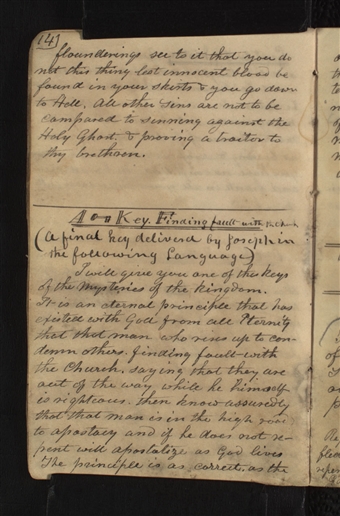 141
flounderings see to it that you do
not this thing lest innocent blood be
found in your skirts & you go down
to Hell. All other sins are not to be
compared to sinning against the
Holy Ghost. & proving a traitor to
thy brethren.
A Key. Finding fault with the Church
(A final key delivered by Joseph in
the following Language)
I will give you one of the keys
of the mysteries of the kingdom.
It is an eternal principle that has
existed with God from all Eternity
that that man who rises up to con-
demn others, finding fault with
the Church, saying that they are
out of the way while he himself
is righteous, then know assuredly
that that man is in the high road
to apostacy and if he does not re-
pent will apostatize as God lives
The principle is as correct as the